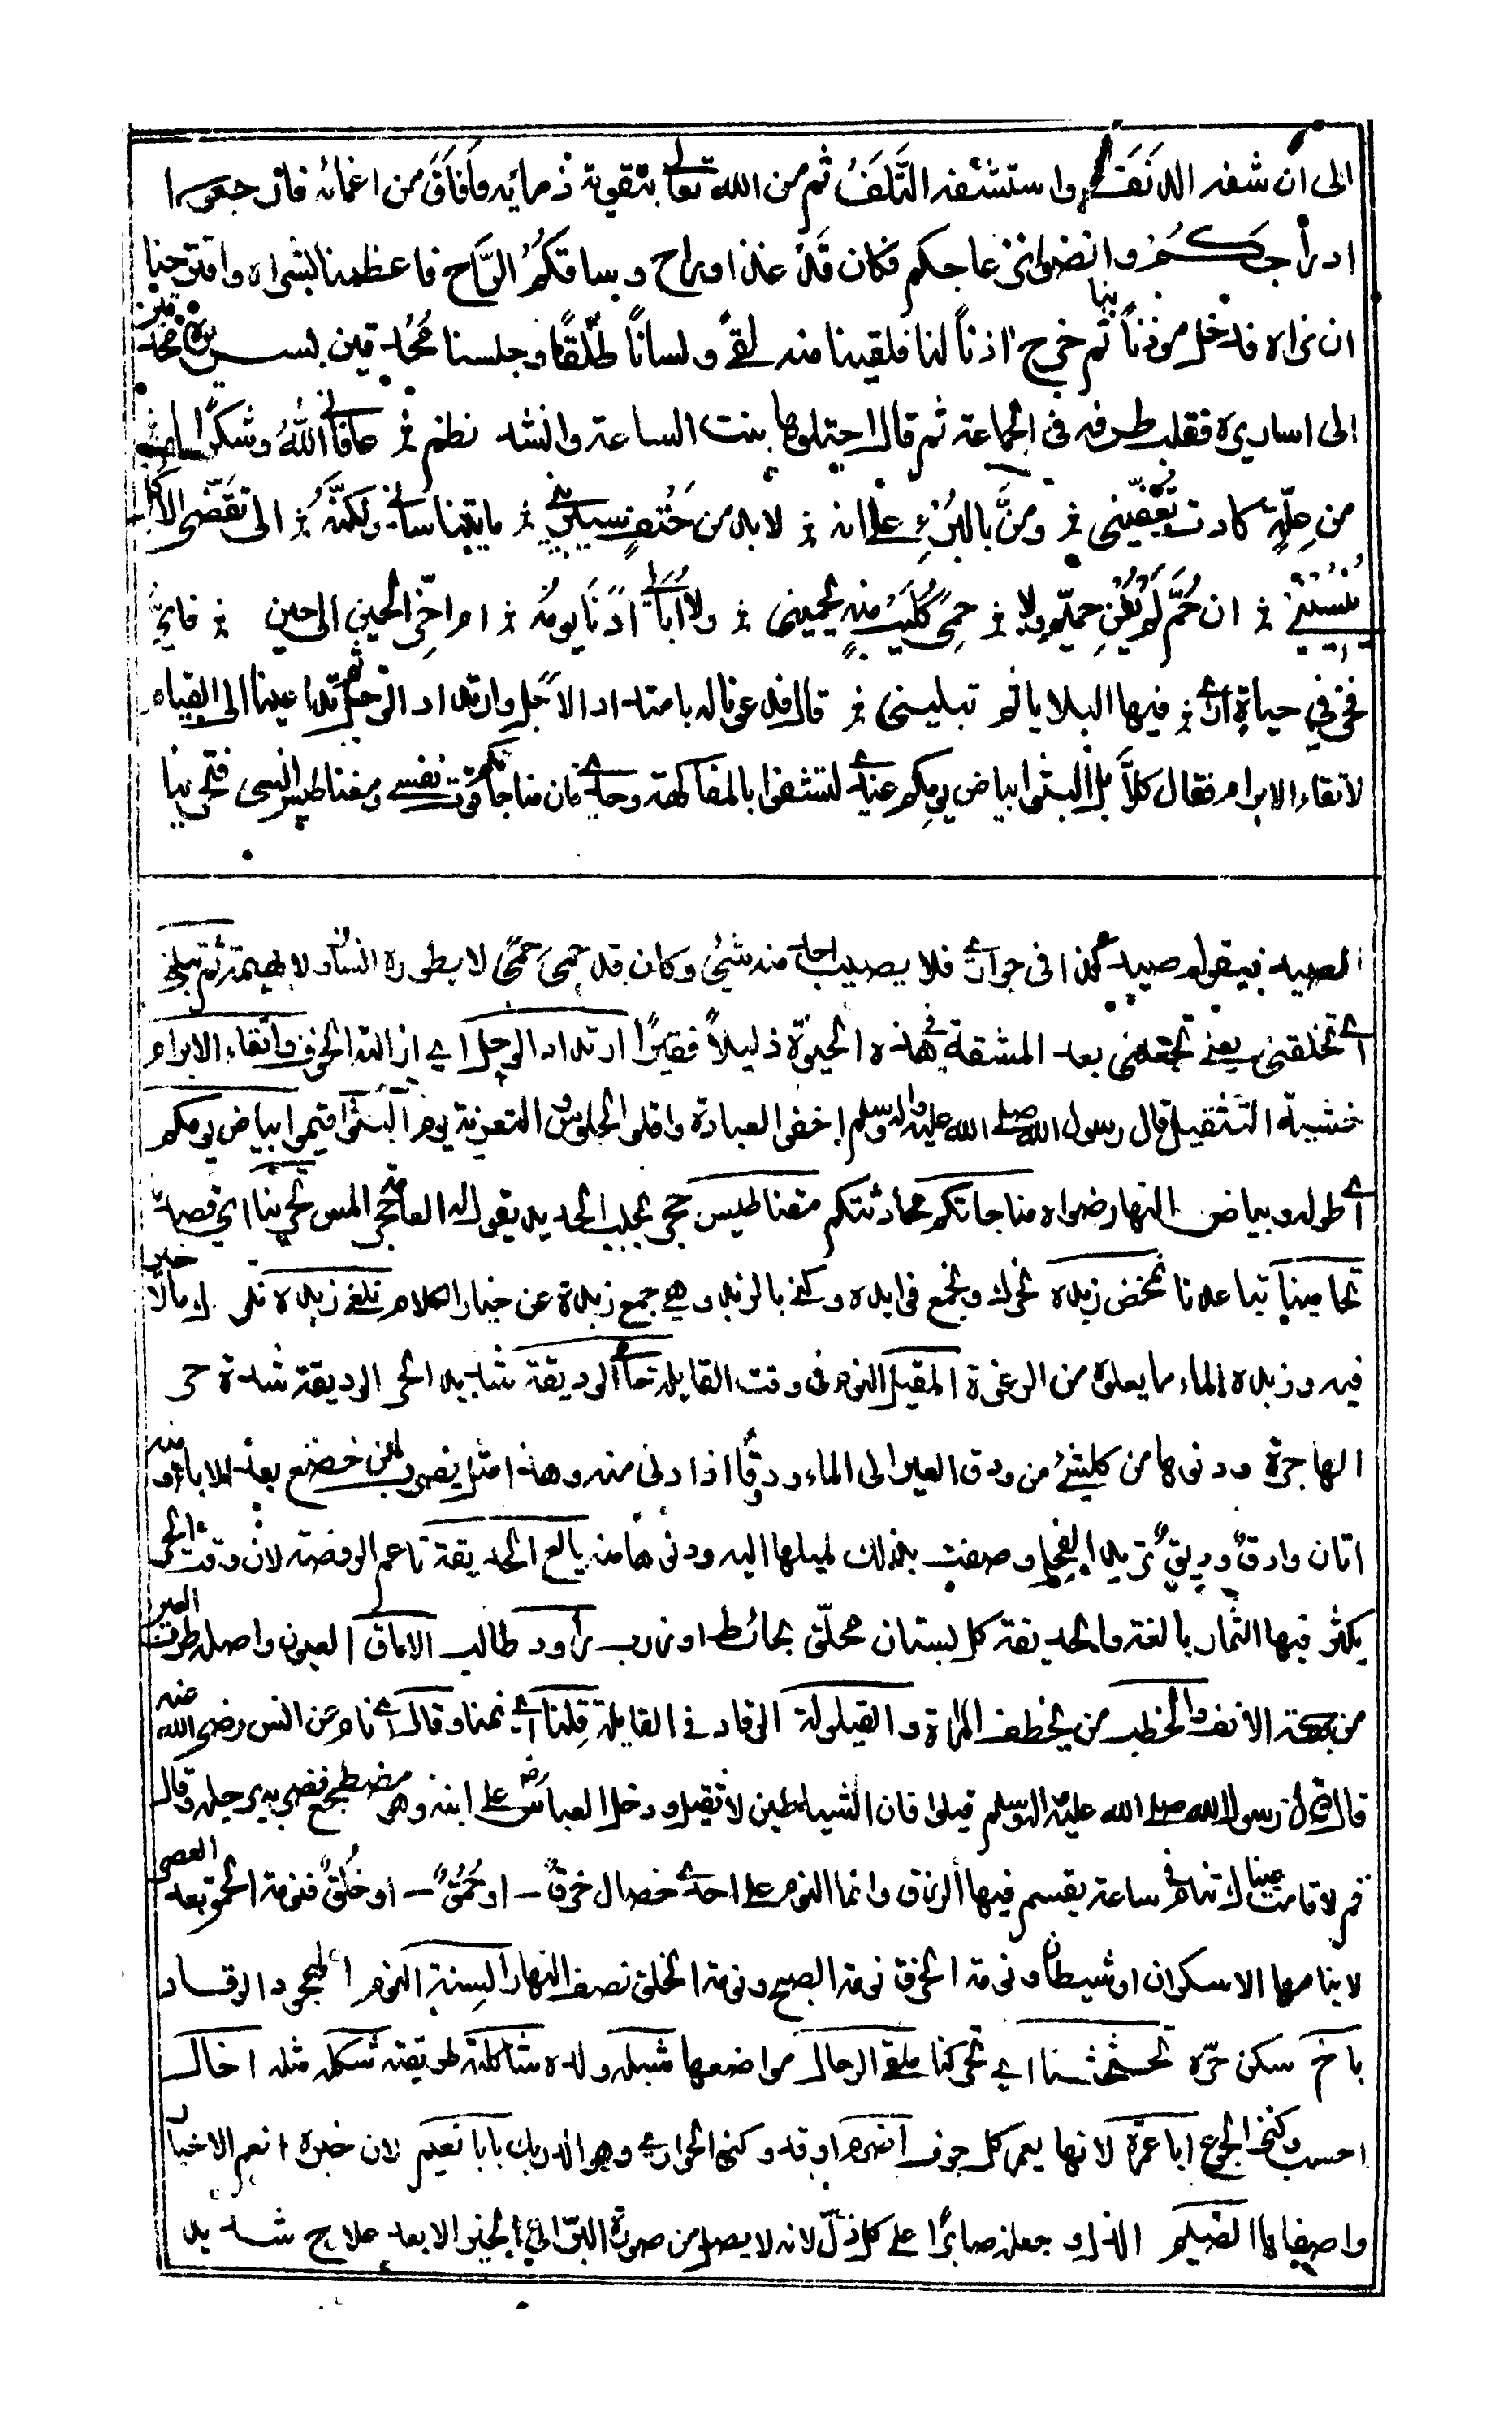 الى ان شفه الدنف واستشفه التلف ثم من الله تعالى بتقوية ذمائه وافاق من اغمائه فارجعوا
ادراجكم وانضوا انزعاجكم فكان قد غدا وراح وساقكم الراح فاعظمنا بشراه واقترحنا
ان نراه فدخل موذنا بنا ثم خرج اذنا لنا فلقينا منه لقى ولسانا طلقا وجلسنا محدقين بسريره محدقين
الى اساريره فقلب طرفه فى الجماعة ثم قال اجتلوها بنت الساعة وانشد نظم عافانى الله وشكرا له
من علة كادت تعفينى ومن بالبرء على انه لابد من حتف سيبرينى ما يتناسانى ولكنه الى تقضى الاكل
ينسينى ان حم لم يغن حميم ولا حمى كليب منه يحمينى ولا ابالى ادنا يومه ام اخر الحين الى حين فاى
فخر فى حياة ارى فيها البلايا ثم تبلينى قال فدعونا له بامتداد الاجل وارتداد الوجل ثم تداعينا الى القيام
لاتقاء الابرام فقال كلا بل البثوا بياض يومكم عندى لتشفوا بالمفاكهة وجدى فان مناجاتكم قوت نفسى ومغناطيس انسى فتحرينا
الصيد فيقول صيد كذا فى جوارى فلا يصيب احد منه شئ وكان قد حمى حمى لا يطوره انسان ولا بهيمة ثم تبلينى
اى تخلقنى يعنى تجعلنى بعد المشقة فى هذه الحيوة ذليلا فقيرا ارتداد الوجل اى ازالة الخوف واتقاء الابرام
خشية التثقيل قال رسول الله صلى الله عليه واله وسلم اخفوا العيادة واقلوا الجلوس و التعزية يوم البثوا اقيموا بياض يومكم
اى طوله وبياض النهار ضواه مناجاتكم محادثتكم مغناطيس حجر يجلب الحديد يقول له العامة حجر المس تحرينا اى قصدنا
تحامينا تباعدنا نمخض زبده نحرك ونجمع فوايده وكنى بالزبد وهى جمع زبدة عن خيار الكلام نلغى زبده نترك مالا خير
فيه وزبد الماء ما يعلوه من الرغوة المقيل النوم فى وقت القايلة حامى الوديقة شديد الحر الوديقة شدة حر
الهاجرة ودنوها من كل شئ من ودق العير الى الماء ودقا اذا دنى منه وهذا مثل يضرب لمن خضع بعد الاباء ومنه
اتان وادق وديق تريد الفحل وصفت بذلك لميلها اليه ودنوها منه يانع الحديقة ناعم الروضة لان وقت الحر
يكثر فيها الثمار بالغة والحديقة كل بستان محلق بحائط او زرب راود طالب الاماق العيون واصله طرف العين
من جهة الانف والخطب من يخطف المراة والقيلولة الرقاد فى القايلة قلنا اى نمنا وقال اى نام عن انس رضى الله عنه
قال قال رسول الله صلى الله عليه واله وسلم قيلوا فان الشياطين لا تقيل ودخل العباس رض على ابنه وهو مضطجع فضربه برجله وقال
قم لا قامت عينا ك تنام فى ساعة يقسم فيها الرزاق وانما النوم على احدى خصال خرق او حمق او خلق فنومة الحمق بعد العصر
لا ينامها الا سكران او شيطان ونومة الخرق نومة الصبح ونومة الخلق نصف النهار السنة النوم الهجود الرقاد
باخ سكن حره تحثحثنا اى تحركنا ملقى الرحال مواضعها شبله ولده شاكلته طريقته شكله مثله اخال
احسب وكنى الجوع ابا عمرة لانها يعمر كل جوف اضرم اوقد وكنى الحوارى وهو الدرمك بابا نعيم لان خبزه انعم الاخباز
واصفاها الضيم الذل و جعله صابرا على كل ذل لانه لا يصل من صورة البر الى الخبز الا بعد علاج شديد